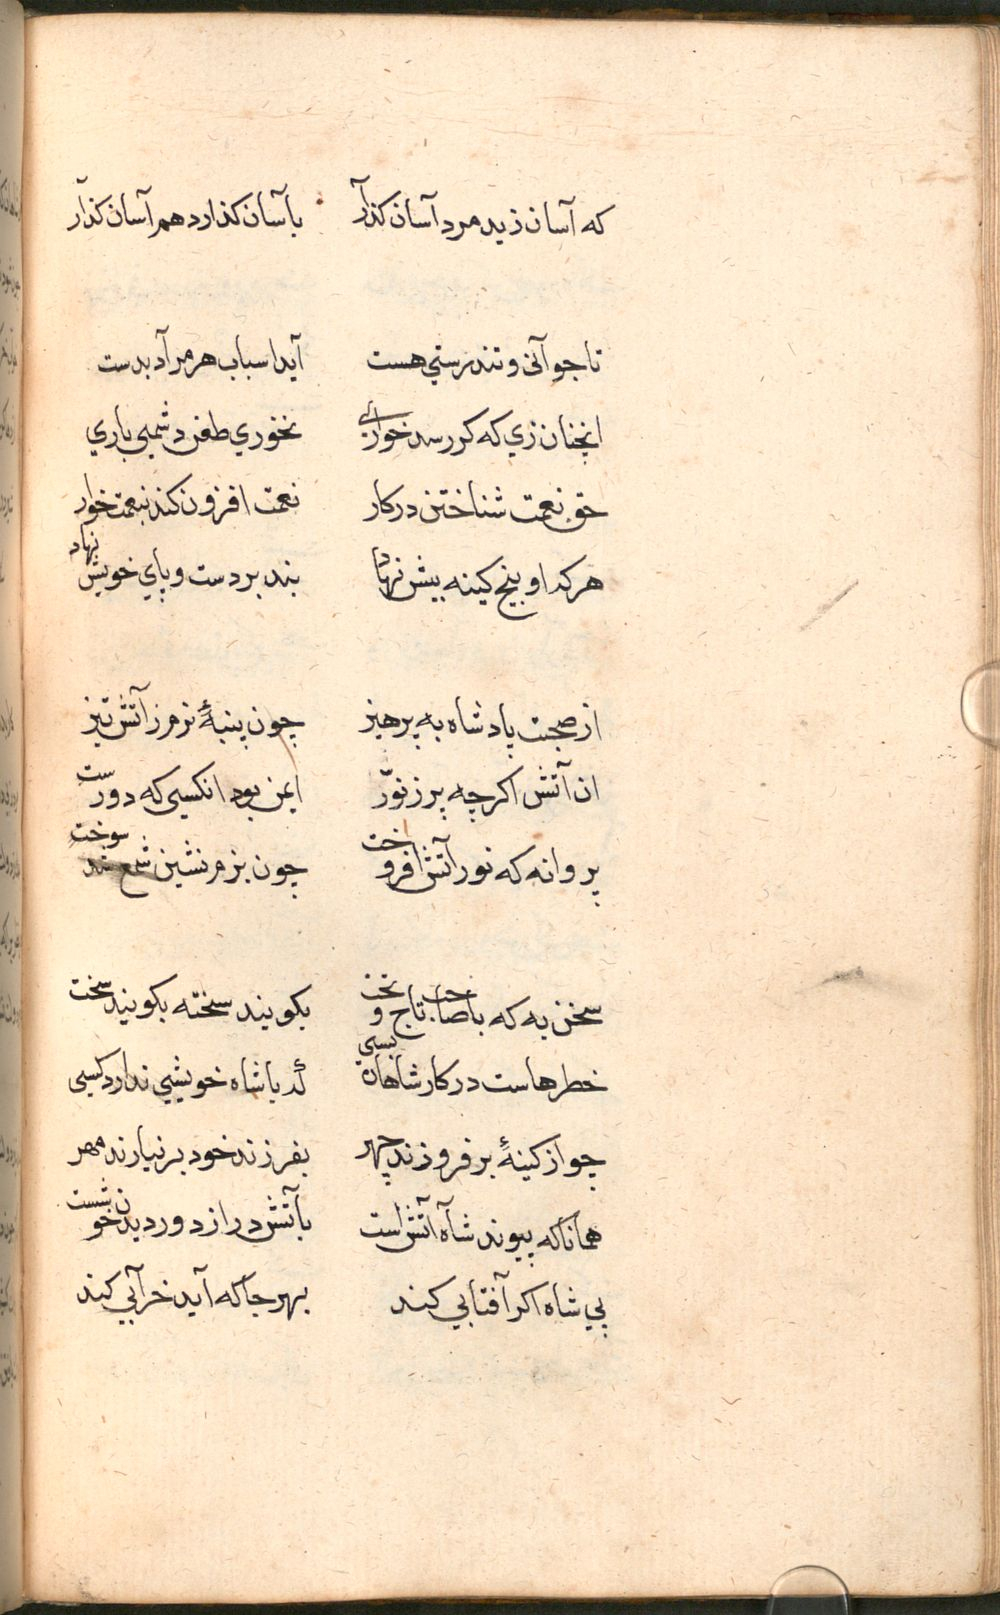 که آسان زید مرد آسان کذآر    بآسان کذارد هم آسان کذآر
تا جوآنی و تندرستي هست    آید اسباب هر مرآد بدست
انچنان زي که کر رسد خوآري    نخوري طعن دشمني باري
حق نعمت شناختن در کار    نعمت افزون کند نبعمتخوار
هرکه او بیخ کینه بیش نهاد    بند بر دست و پاي خویش نهاد
از صحبت پادشاه به پرهیز    چون پنبهٔ نرم ز آتش تیز
ان آتش اکرچه پر ز نوّر    ایمن بود انکسی که دورست
پروانه که نور آتش افروخت    چون بزم نشین شمع شد سوخت
سخن به که با صاحب تاج و تخت    بکویند سخته بکویند سخت
خطرهاست در کار شاهان بسي    که با شاه خویشي ندارد کسی
چو از کینهٔ بر فروزند چهر    بفرزند خود بر نیارند مهر
همانا که پیوند شآه آتش است    بآتش در از دور دیدن خوشست
پي شاه اکر آفتابي کند    بهر جا که آید خرآبي کند